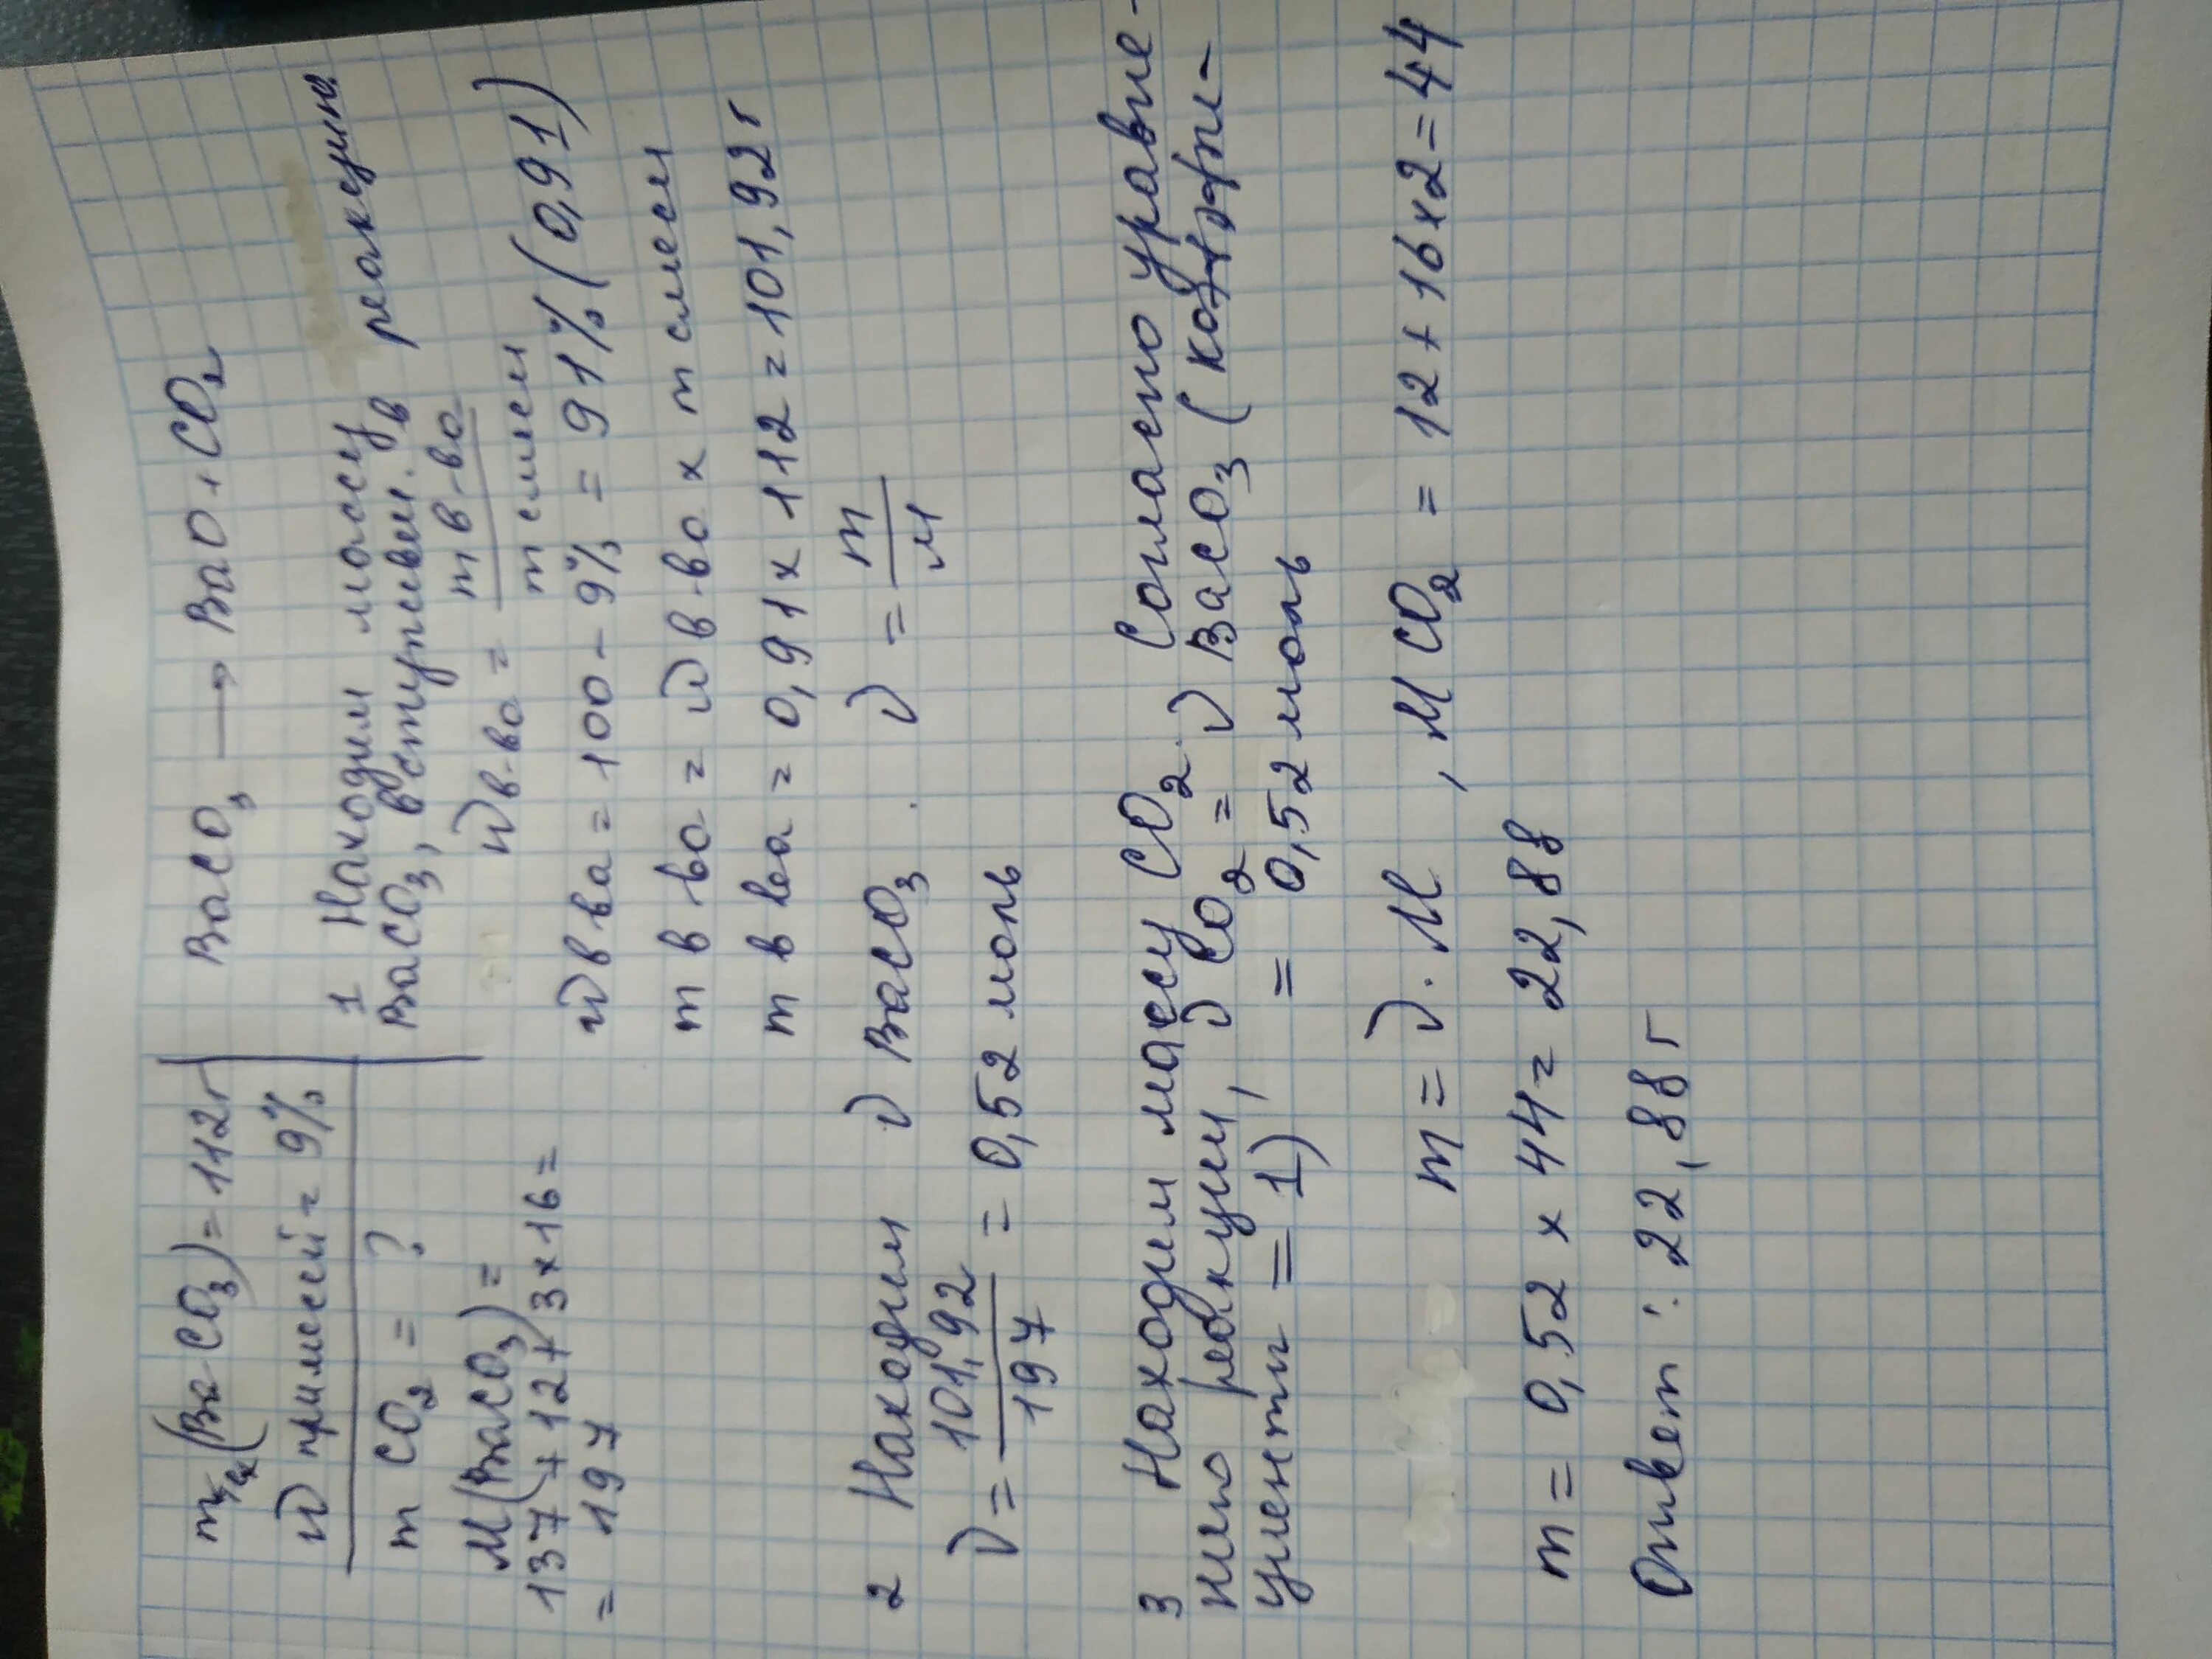 m тех (BaCO₃) = 112г
W примесей = 9%
m CO₂ = ?
M(BaCO₃) =
137 + 12 + 3×16 =
= 197
BaCO₃ → BaO + CO₂
1 Находим массу
BaCO₃, вступивш. в реакцию.
W в-ва = m в-ва / m смеси
W в ва = 100 - 9% = 91% (0,91)
m в-ва = W в-ва × m смеси
m в ва = 0,91 × 112 = 101,92 г
2 Находим ν BaCO₃. ν = m / M
ν = 101,92 / 197 = 0,52 моль
3 Находим массу CO₂. Согласно уравне-
нию реакции, ν CO₂ = ν BaCO₃ (коэффи-
циенты = 1) = 0,52 моль
m = ν · M , M CO₂ = 12 + 16×2 = 44
m = 0,52 × 44 = 22,88
Ответ: 22,88 г